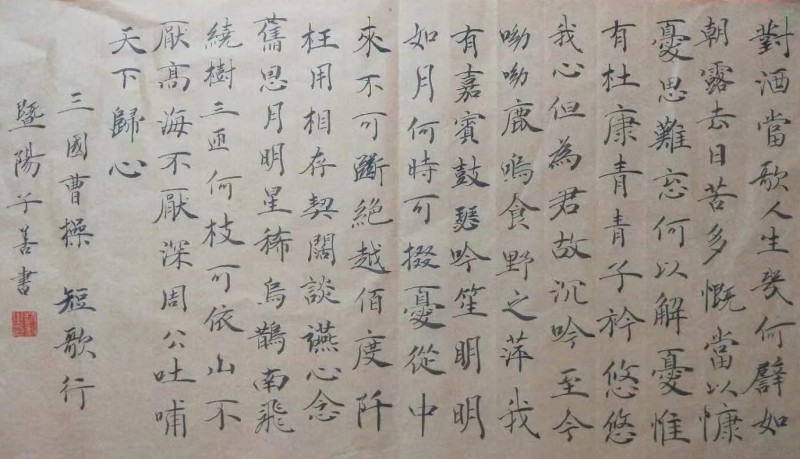 對酒當歌人生幾何譬如
朝露去日苦多慨當以慷
憂思難忘何以解憂惟
有杜康青青子衿悠悠
我心但為君故沉吟至今
呦呦鹿鳴食野之萍我
有嘉賓鼓瑟吟笙明明
如月何時可掇憂從中
來不可斷絕越佰度阡
枉用相存契闊談讌心念
舊恩月明星稀烏鵲南飛
繞樹三匝何枝可依山不
厭高海不厭深周公吐哺
天下歸心
三國曹操 短歌行
暨陽子善書